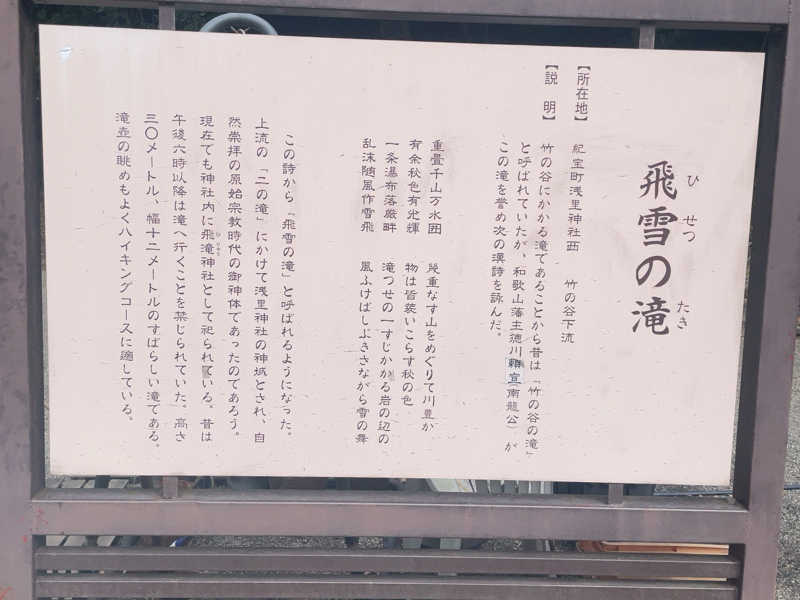 飛雪の滝
ひせつ たき
【所在地】 紀宝町浅里神社西 竹の谷下流
【説 明】 竹の谷にかかる滝であることから昔は「竹の谷の滝」
と呼ばれていたが、和歌山藩主徳川頼宣(南龍公)が
この滝を誉め次の漢詩を詠んだ。
重畳千山万水囲 幾重なす山をめぐりて川豊か
有余秋色有光輝 物は皆装いこらす秋の色
一条瀑布落巌畔 滝つせの一すじかかる岩の辺の
乱沫随風作雪飛 風ふけばしぶきさながら雪の舞
この詩から「飛雪の滝」と呼ばれるようになった。
上流の「二の滝」にかけて浅里神社の神域とされ、自
然崇拝の原始宗教時代の御神体であったのであろう。
現在でも神社内に飛滝神社として祀られている。昔は
午後六時以降は滝へ行くことを禁じられていた。高さ
三〇メートル、幅十二メートルのすばらしい滝である。
滝壺の眺めもよくハイキングコースに適している。